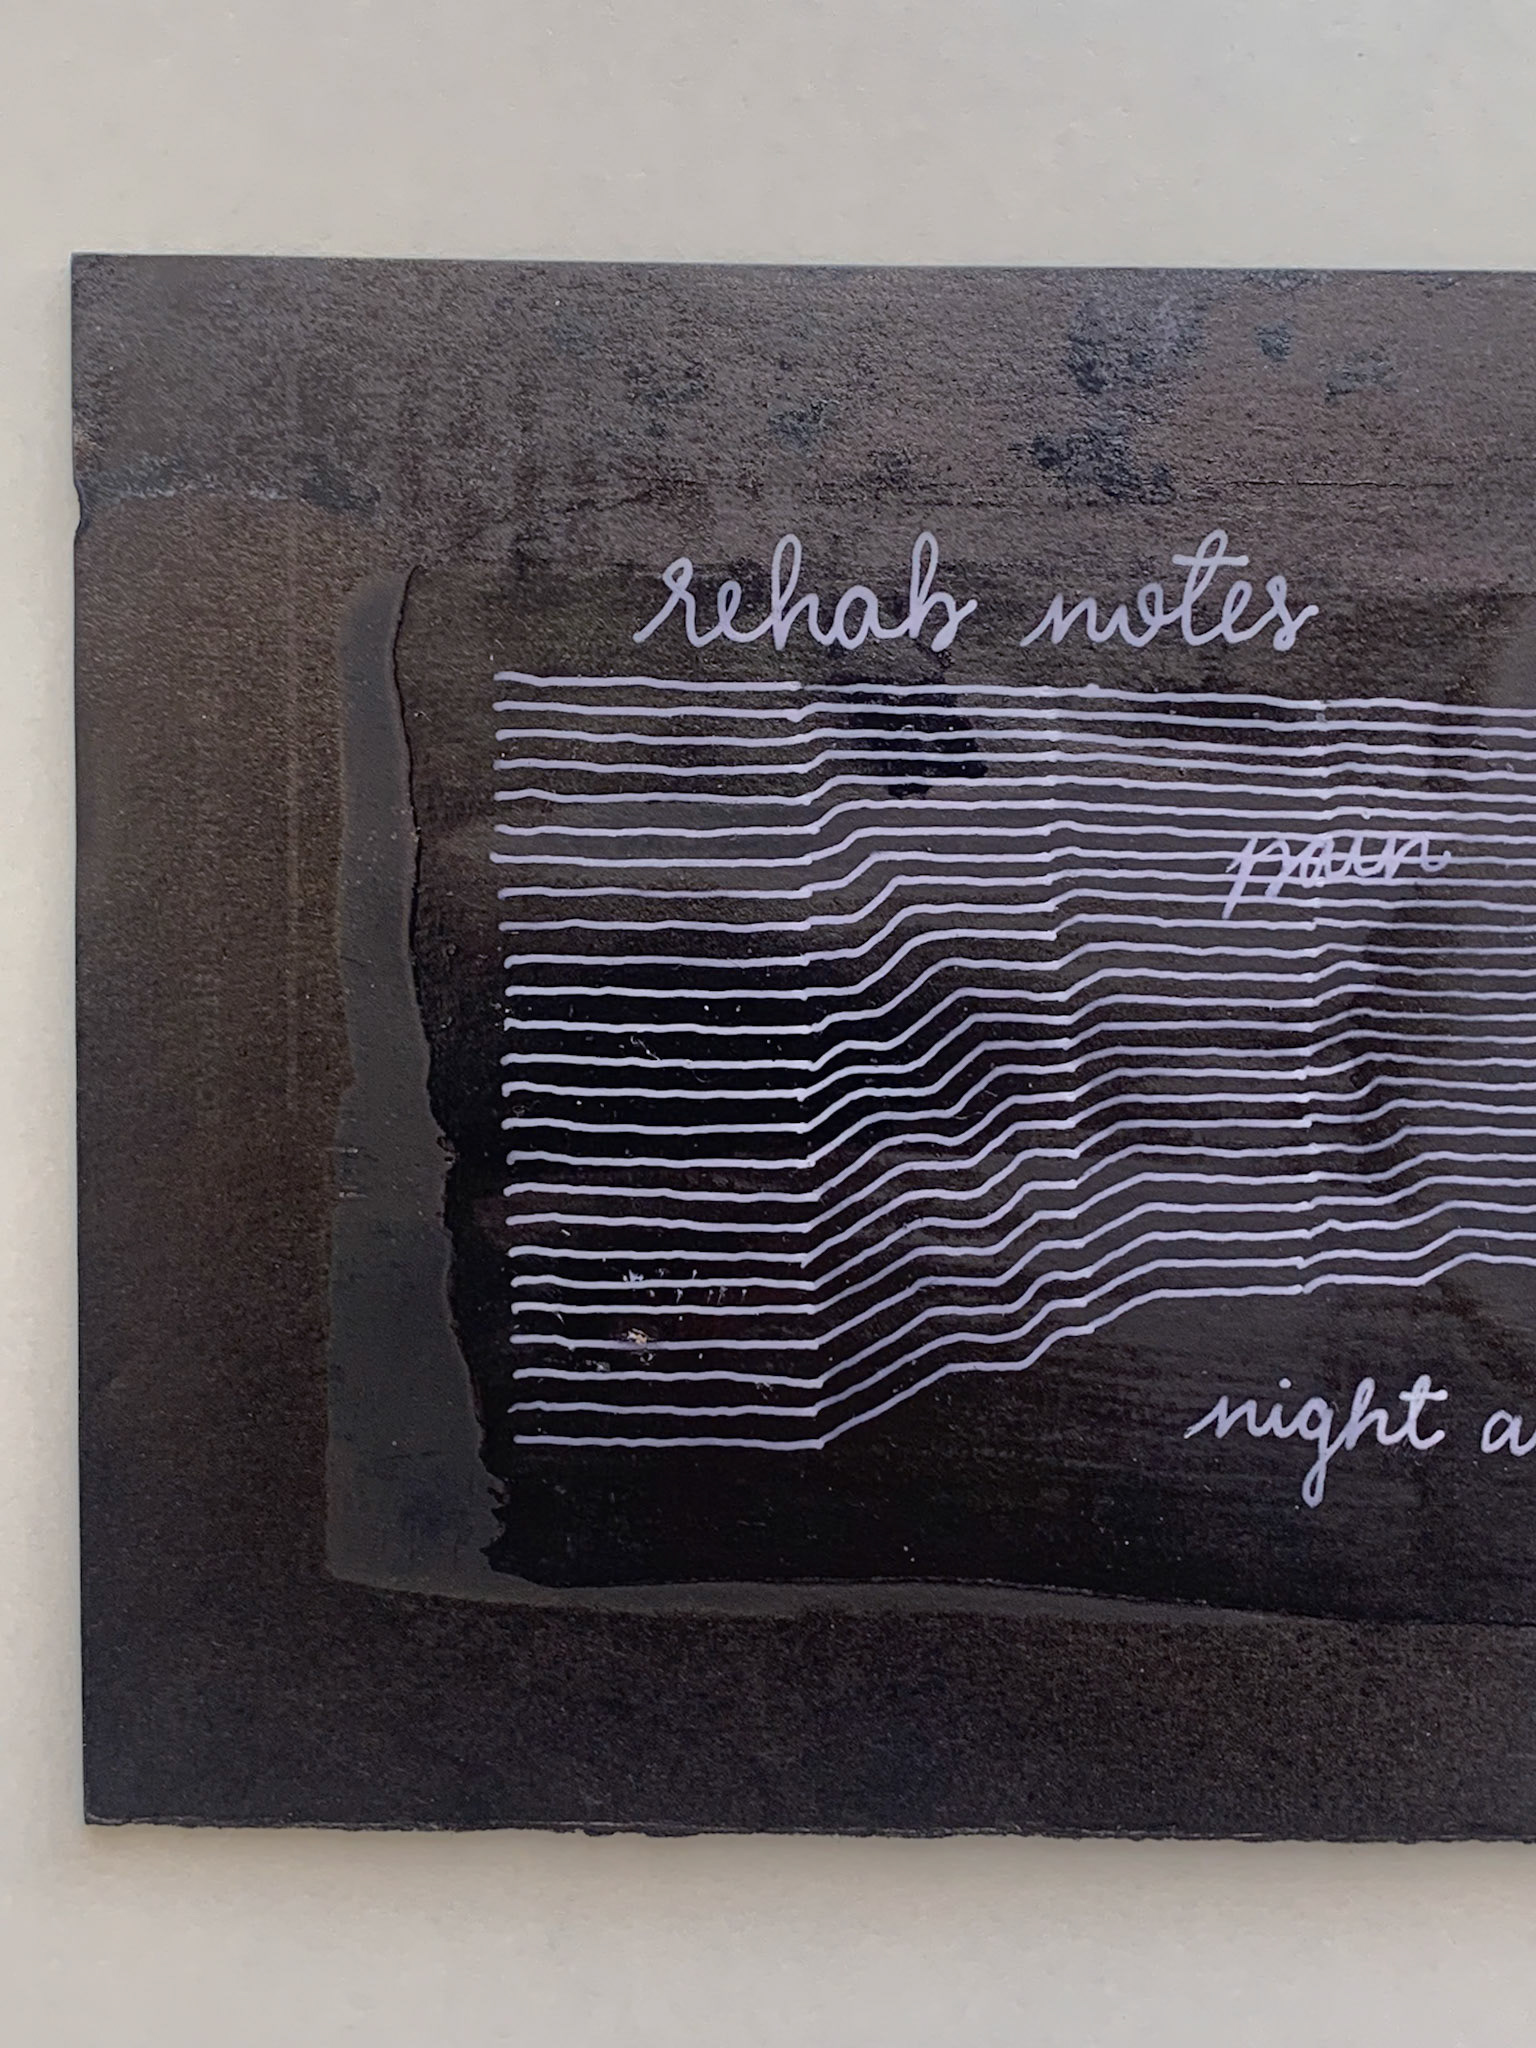 rehab notes
pain
night a